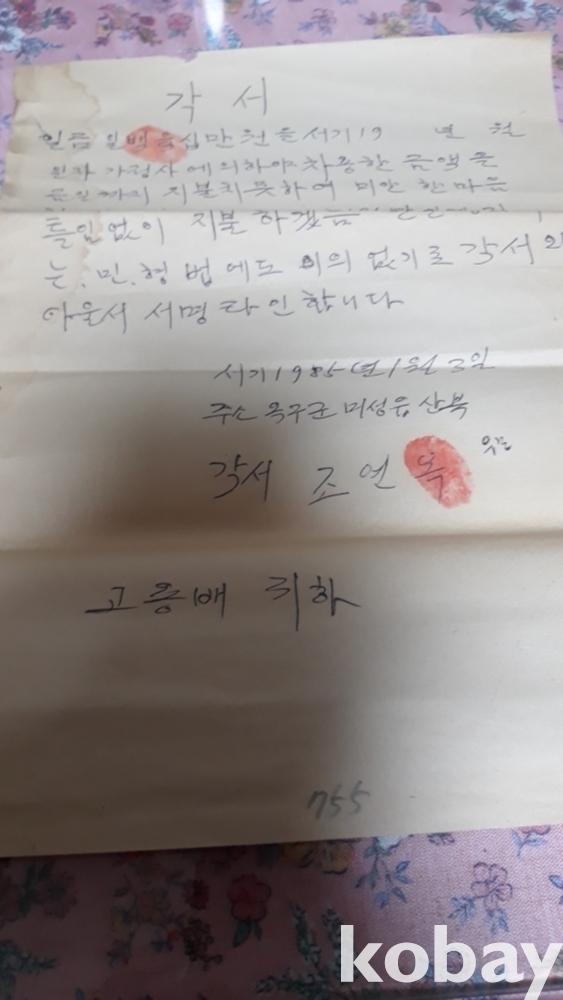 각서
일금 일백육십만원을 서기19 년 월
가정사에 의하야 차용한 금액을
지불치 못하여 미안한 마음
틀임없이 지불하겠금
는. 민. 형법에도 이의 없기로 각서와
아울서 서명 타인합니다
서기1985년1월3일
주소 옥구군 미성읍 산북
각서 조연옥
고흥배 귀하
755
kobay